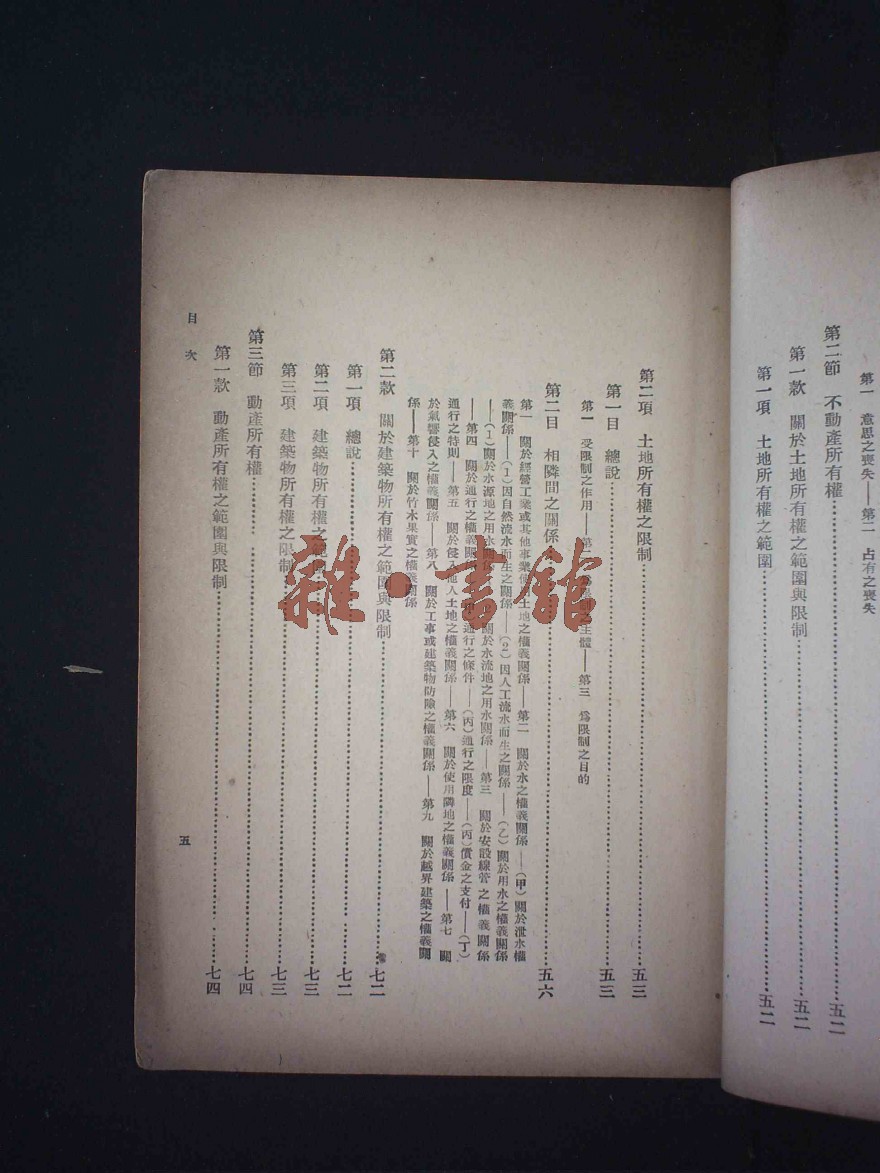 第一　意思之喪失——第二　占有之喪失
第二節　不動產所有權……五二
第一款　關於土地所有權之範圍與限制……五二
第一項　土地所有權之範圍……五二
第二項　土地所有權之限制……五三
第一目　總說……五三
第一　受限制之作用——第二　限制之主體——第三　爲限制之目的
第二目　相隣間之關係……五六
第一　關於經營工業或其他事業使用土地之權義關係——第二　關於水之權義關係——（甲）關於泄水權
義關係——（1）因自然流水而生之關係——（2）因人工流水而生之關係——（乙）關於用水之權義關係
——（1）關於水源地之用水關係　關於水流地之用水關係——第三　關於安設線管之權義關係
——第四　關於通行之權義關係　通行之條件——（丙）通行之限度——（丙）償金之支付——（丁）
通行之特則——第五　關於侵入他人土地之權義關係——第六　關於使用隣地之權義關係——第七　關
於氣響侵入之權義關係——第八　關於工事或建築物防險之權義關係——第九　關於越界建築之權義關
係——第十　關於竹木果實之權義關係
第二款　關於建築物所有權之範圍與限制……七二
第一項　總說……七二
第二項　建築物所有權之範圍……七三
第三項　建築物所有權之限制……七三
第三節　動產所有權……七四
第一款　動產所有權之範圍與限制……七四
目次
五
雜·書館